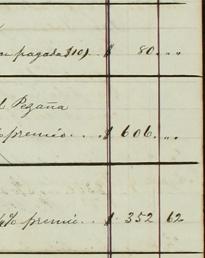 pagada $10) $ 80 "
Pezaña
premio . . $ 606 . "
% premio . . $ 352 62